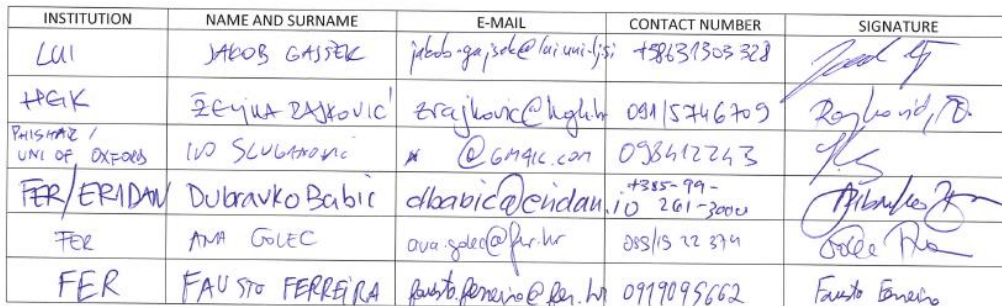 INSTITUTION NAME AND SURNAME E-MAIL CONTACT NUMBER SIGNATURE
LUI JAKOB GAJŠEK jakob.gajsek@lui.uni-lj.si +38631303328
HGK ŽELJKA RAJKOVIĆ zrajkovic@hgk.hr 091/5746709
UNI OF OXFORD IVO SLUGANOVIC @GMAIL.COM 098412243
FER/ERIDAN Dubravko Babić dbabic@eridan.io +385-99-
261-3000
FER ANA GOLEC ana.golec@fer.hr
FER FAUSTO FERREIRA fausto.ferreira@fer.hr 0919095662 Fausto Ferreira